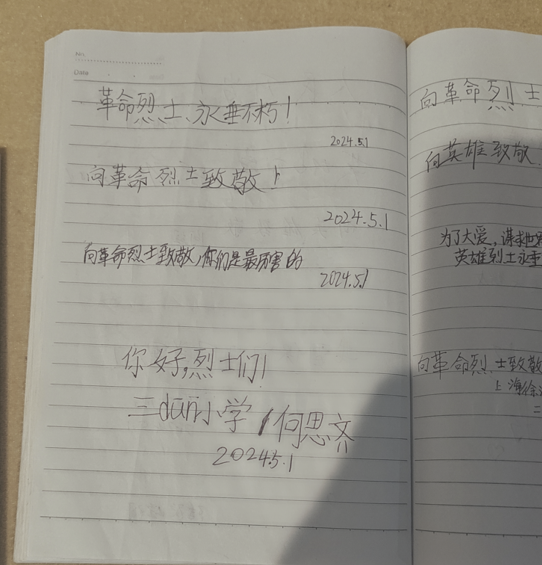 革命烈士、永垂不朽！
2024.5.1
向革命烈士致敬！
2024.5.1
向革命烈士致敬，你们是最厉害的
2024.5.1
你好，烈士们！
三duàn小学 何思齐
2024.5.1
向革命烈士
向英雄致敬
为了大爱，谋求世界
英雄烈士永垂
向革命烈士致敬
上海徐
二